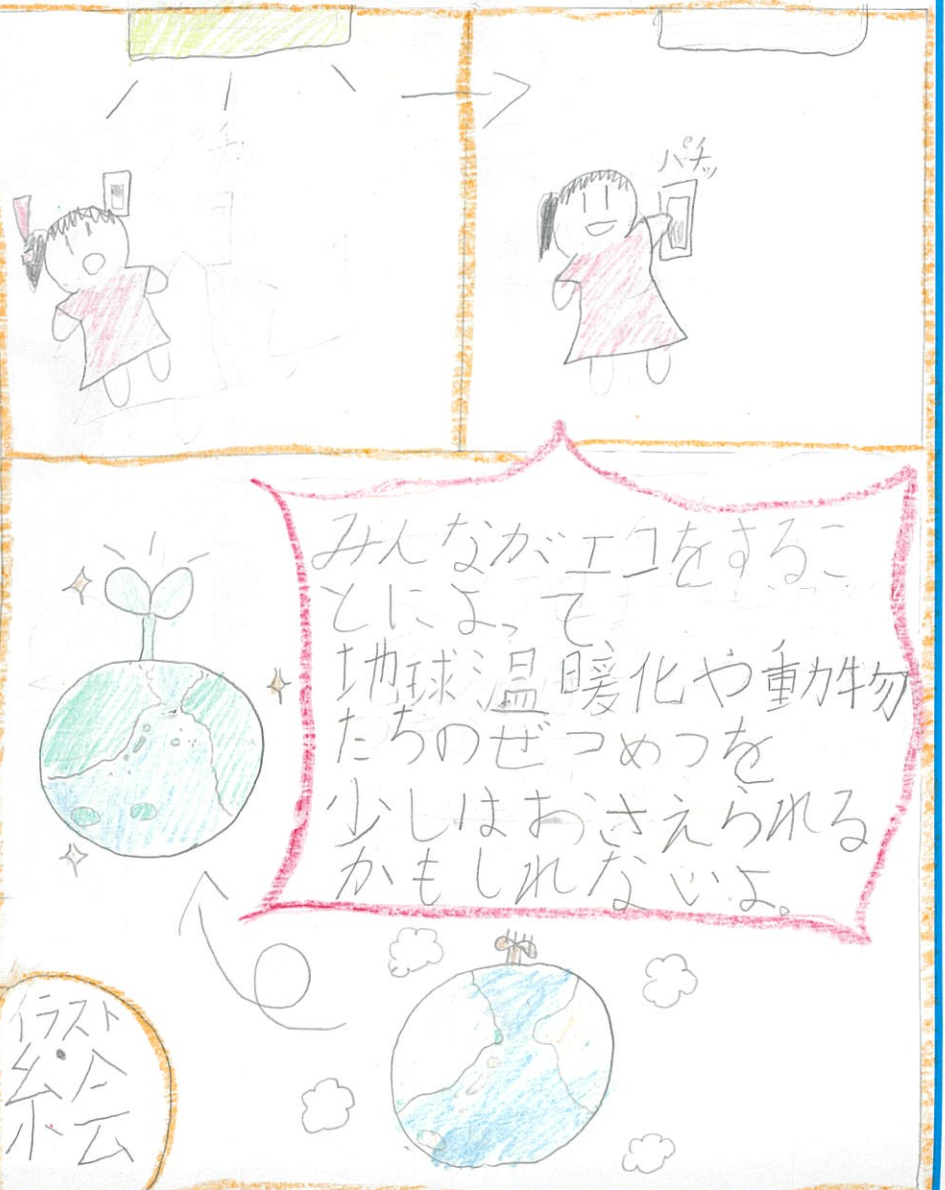 パチッ
みんながエコをするこ
とによって、
地球温暖化や動物
たちのぜつめつを
少しはおさえられる
かもしれないよ。
イラスト
・
絵